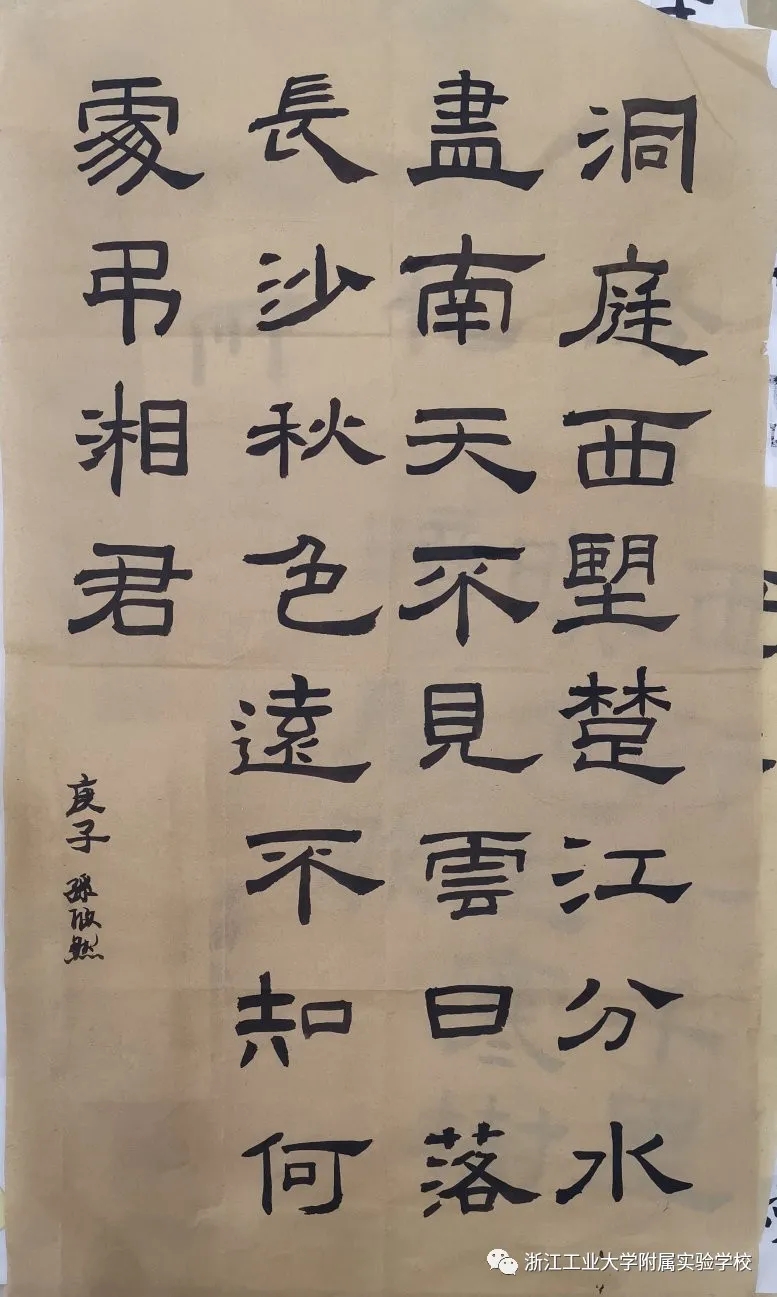 洞庭西朢楚江分水
盡南天不見雲日落
長沙秋色遠不知何
處弔湘君
庚子 孫欣然
浙江工业大学附属实验学校